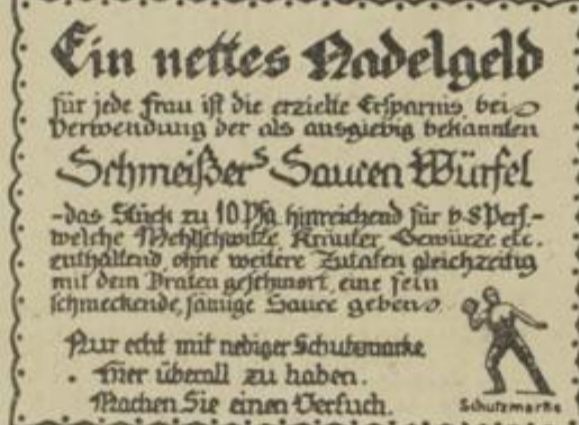 Ein nettes Nadelgeld
für jede Frau ist die erzielte Ersparnis bei
Verwendung der als ausgiebig bekannten
Schmeißer's Saucen Würfel
- das Stück zu 10 Pfg. hinreichend für 6-8 Pers. -
welche Mehlschwitze, Kräuter, Gewürze etc.
enthaltend ohne weitere Zutaten gleichzeitig
mit dem Braten geschmort, eine fein
schmeckende, sämige Sauce geben.
Nur echt mit nebiger Schutzmarke
Hier überall zu haben.
Machen Sie einen Versuch.
Schutzmarke